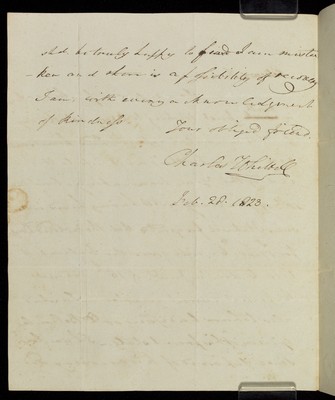 shd be truly happy to find I am mista
-ken and there is a possibility of
I am with every acknowledgement
of kindness.
Your obliged friend.
Charles
Feb. 28. 1823.